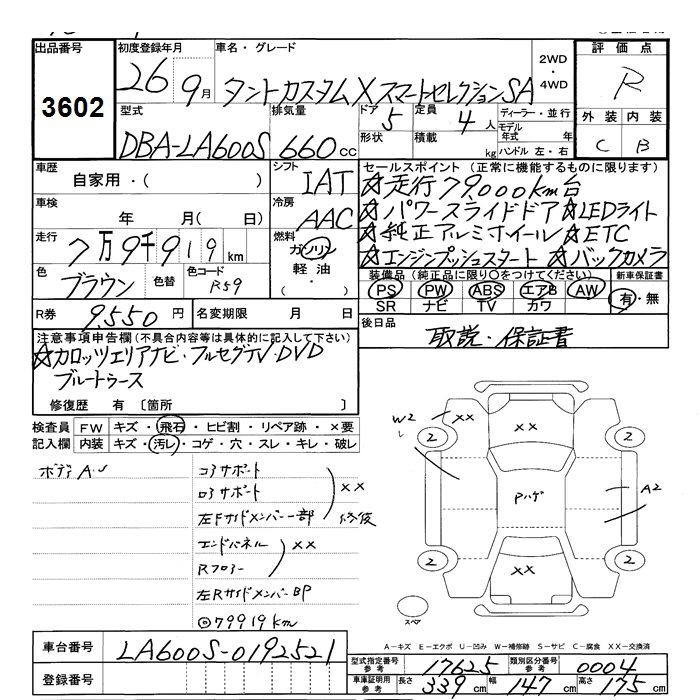 出品番号 初度登録年月 車名・グレード 2WD・4WD 評価点
3602 26 9月 タントカスタムXスマートセレクションSA R
型式 排気量 ドア 5 定員 4人 ディーラー・並行 外装 内装
DBA-LA600S 660cc 形状 積載 kg モデル年式 年 C B
ハンドル 左・右
車歴 シフト セールスポイント(正常に機能するものに限ります)
自家用・( ) IAT ☆走行79,000km台
車検 冷房 ☆パワースライドドア☆LEDライト
年 月( 日) AAC ☆純正アルミホイール☆ETC
走行 7万9千919km 燃料 ガソリン ☆エンジンプッシュスタート☆バックカメラ
軽油 ・( )
色 ブラウン 色替 色コード R59 装備品(純正品に限り○をつけてください) 新車保証書
PS PW ABS エアB AW 有・無
SR ナビ TV カワ
R券 9,550円 名変期限 月 日 後日品
取説・保証書
注意事項申告欄(不具合内容等は具体的に記入して下さい)
☆カロッツェリアナビ・フルセグTV・DVD
ブルートゥース
修復歴 有〔箇所 〕
検査員 FW キズ・飛石・ヒビ割・リペア跡・×要
記入欄 内装 キズ・汚レ・コゲ・穴・スレ・キレ・破レ
ボディAU W2 ××
コアサポート ××
ロアサポート ×× 2 2
左Fサイドメンバー一部 修復 Pハゲ A2
エンドパネル ××
Rフロアー 2 2
左RサイドメンバーBP ××
◎79919km スペア
A-キズ E-エクボ U-凹み W-補修跡 S-サビ C-腐食 XX-交換済
車台番号 LA600S-0192521 型式指定番号 参考 17625 類別区分番号 参考 0004
登録番号 車庫証明用 参考 長さ 339cm 幅 147cm 高さ 175cm